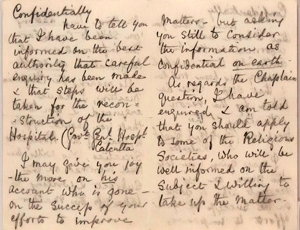 Confidentially
have to tell you
that I have been
informed on the best
authority that careful
enquiry has been made
& that steps will be
taken for the recon
-struction of the
Hospital (Pres. Genl. Hospl.
Calcutta
I may give you joy
- the more on his
account who is gone -
on the success of your
efforts to improve
Matters - but asking
you still to consider
the information as
confidential on earth
As regards the Chaplain
question, I have
enquired & am told
that you should apply
to some of the Religious
Societies, who will be
well informed on the
subject & willing to
take up the matter -